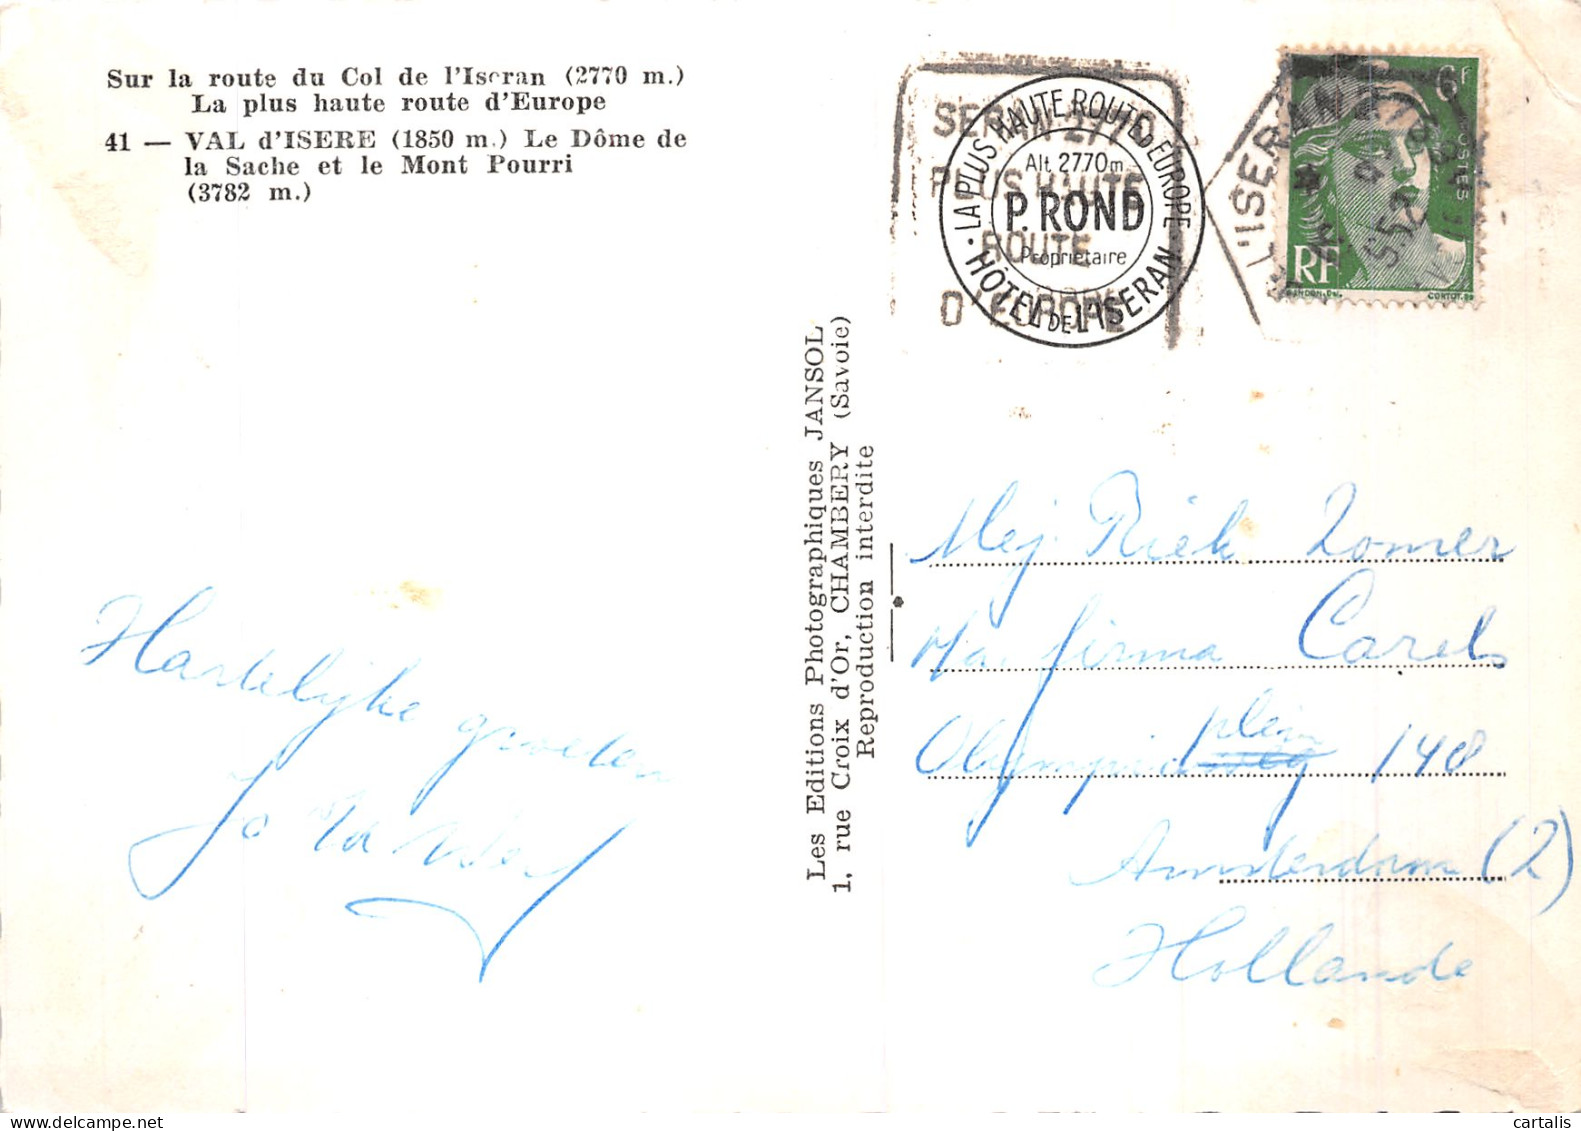 Sur la route du Col de l'Iseran (2770 m.)
La plus haute route d'Europe
41 — VAL d'ISERE (1850 m.) Le Dôme de
la Sache et le Mont Pourri
(3782 m.)
Hartelijke groeten
Jo
Les Editions Photographiques JANSOL
1, rue Croix d'Or, CHAMBERY (Savoie)
Reproduction interdite
ISERAN 2770
PLUS HAUTE
ROUTE
D'EUROPE
LA PLUS HAUTE ROUTE D'EUROPE
Alt. 2770m
P. ROND
Propriétaire
HÔTEL DE L'ISERAN
L'ISERAN
6F
POSTES
RF
GANDON. Del.
CORTOT. SC
Mej. Riek Zomer
p/a. firma Carels
Olympiaplein 148
Amsterdam (2)
Hollande
cartalis